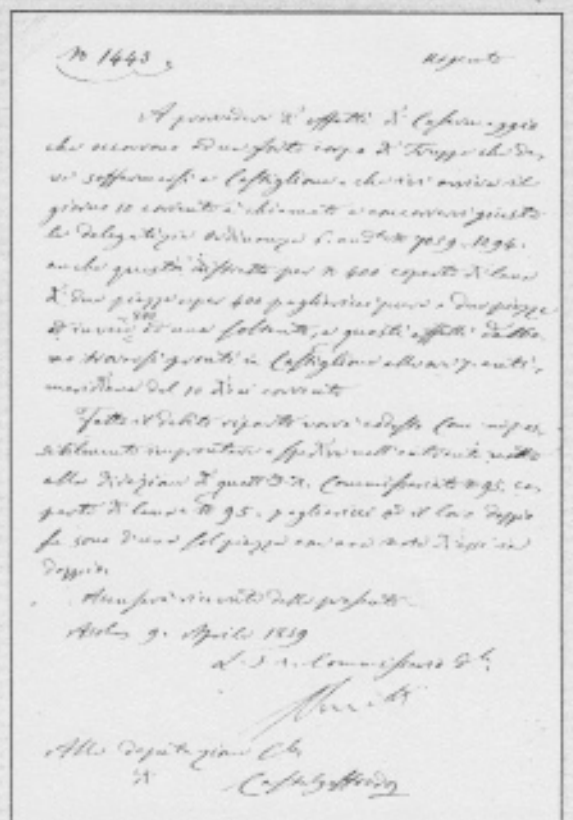 N 1443 urgente
A provvedere d'effetti di Casermaggio
che occorrono ad un forte corpo di Truppe che de-
ve soffermarsi a Castiglione e che ivi arriva il
giorno 10 corrente è chiamato a concorrervi giusta
la delegatizia Ordinanza 6. and. N 7059-1094.
anche questo distretto per N 400 coperte di lana
di due piazze e per 400 pagliericci pure a due piazze
di una soltanto, e questi effetti debbo-
no trovarsi pronti in Castiglione alle ore 7 anti-
meridiane del 10 corrente
Fatto il debito riparto vorrà codesta Com.
nell'entrante notte
alla direzione di quell' Commissariato N 95. co-
perte di lana N 95. pagliericci od il loro doppio
se sono d'una sol piazza con una nota d'essi in
doppio.
Accuserà ricevuta della presente
Asola 9. Aprile 1859
L' I. R. Commissario
Alla deputazione
Castelgoffredo